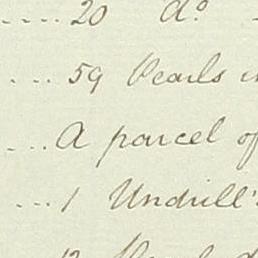 .... 20 do
... 59 Pearls
... A parcel of
... 1 Undrill's